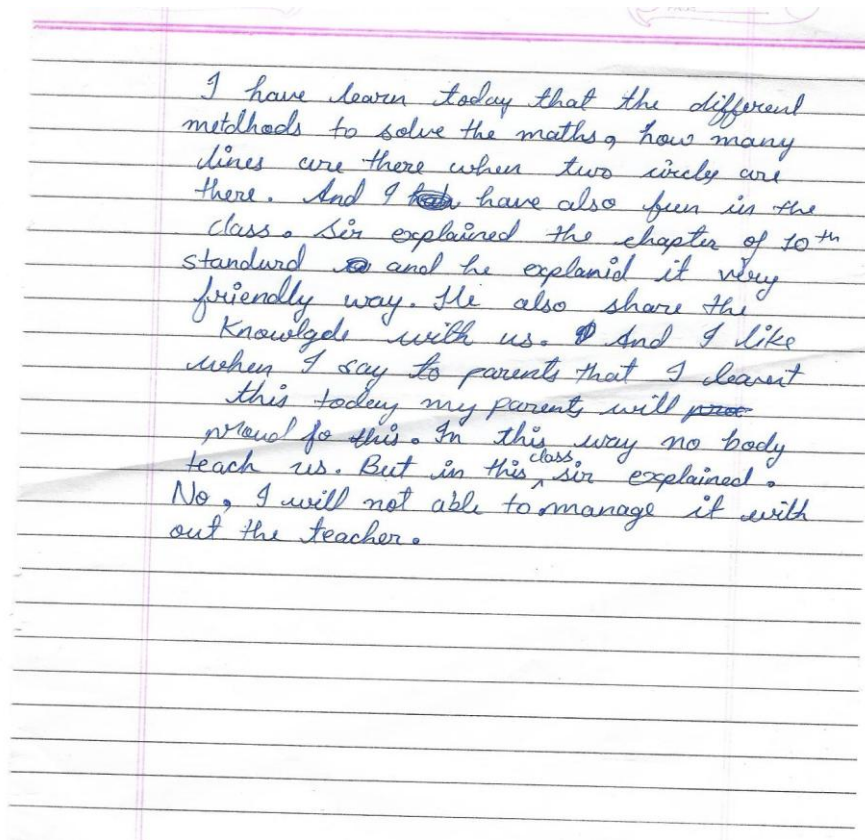 I have learn today that the different
metdhods to solve the maths, how many
lines are there when two circly are
there. And I have also fun in the
class. Sir explained the chapter of 10th
standurd and he explanid it very
friendly way. He also share the
Knowlgde with us. And I like
when I say to parents that I learnt
this today my parents will
proud fo this. In this way no body
teach us. But in this class sir explained.
No, I will not able to manage it with
out the teacher.